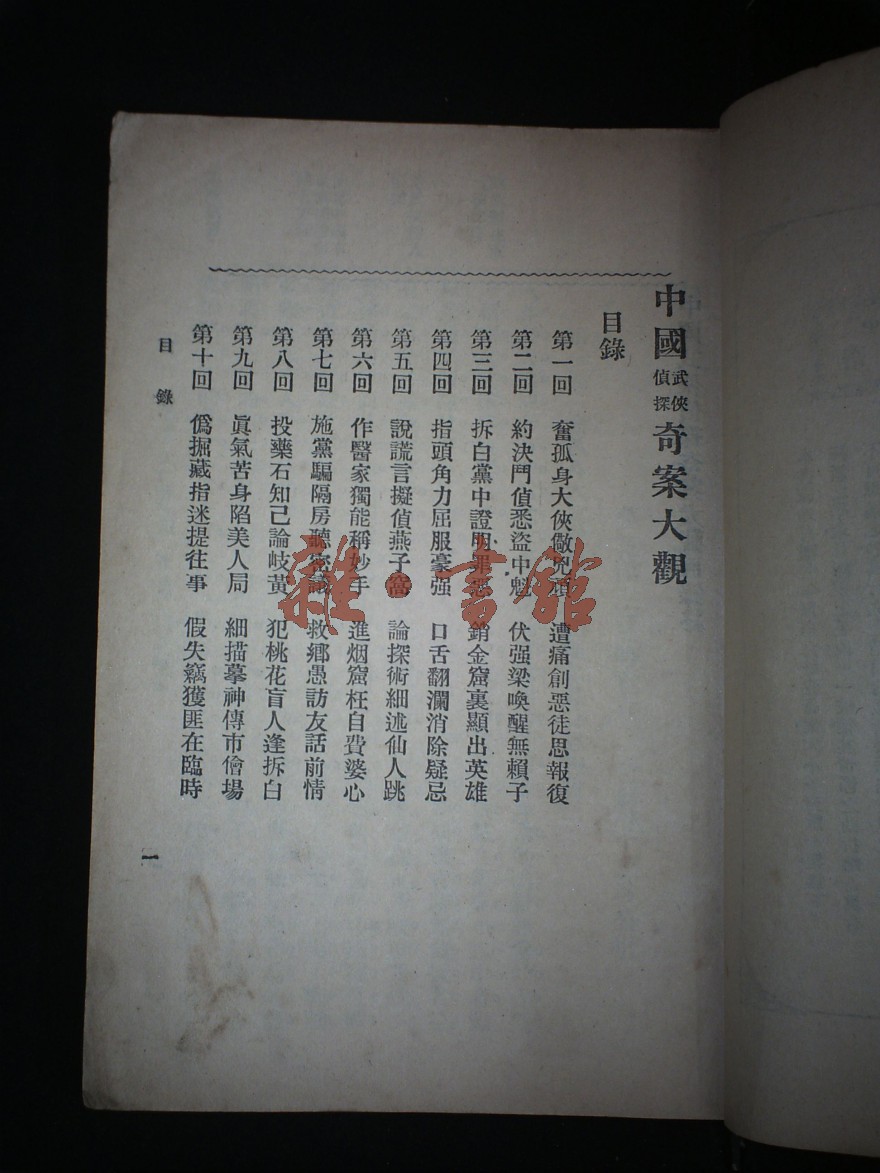 中國武俠偵探奇案大觀
目錄
第一回 奮孤身大俠儆兇頑 遭痛創惡徒思報復
第二回 約決鬥偵悉盜中魁 伏强梁喚醒無賴子
第三回 拆白黨中證明罪惡 銷金窟裏顯出英雄
第四回 指頭角力屈服豪强 口舌翻瀾消除疑忌
第五回 說謊言擬偵燕子窩 論探術細述仙人跳
第六回 作醫家獨能稱妙手 進烟窟枉自費婆心
第七回 施黨騙隔房聽密議 救鄉愚訪友話前情
第八回 投藥石知己論岐黃 犯桃花盲人逢拆白
第九回 眞氣苦身陷美人局 細描摹神傳市儈場
第十回 僞掘藏指迷提往事 假失竊獲匪在臨時
目錄
一
雜·書館